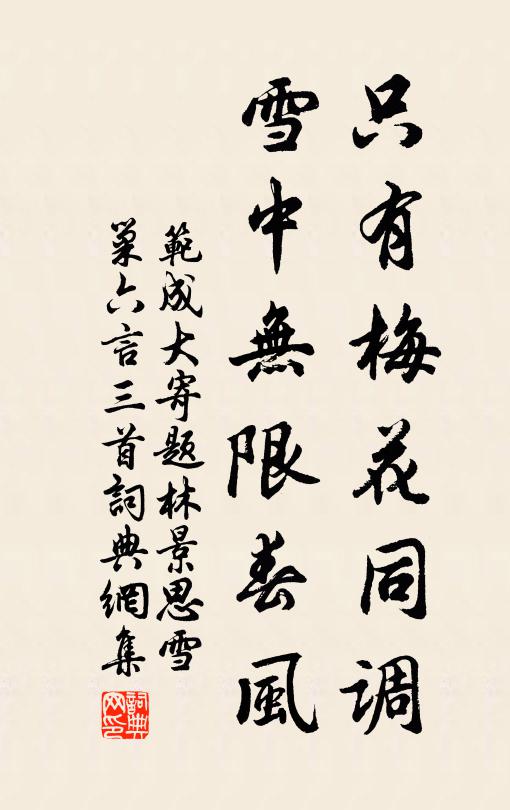 只有梅花同调
雪中無限春風
範成大寄題林景思雪
巢六言三首詞典網集
詞典网印